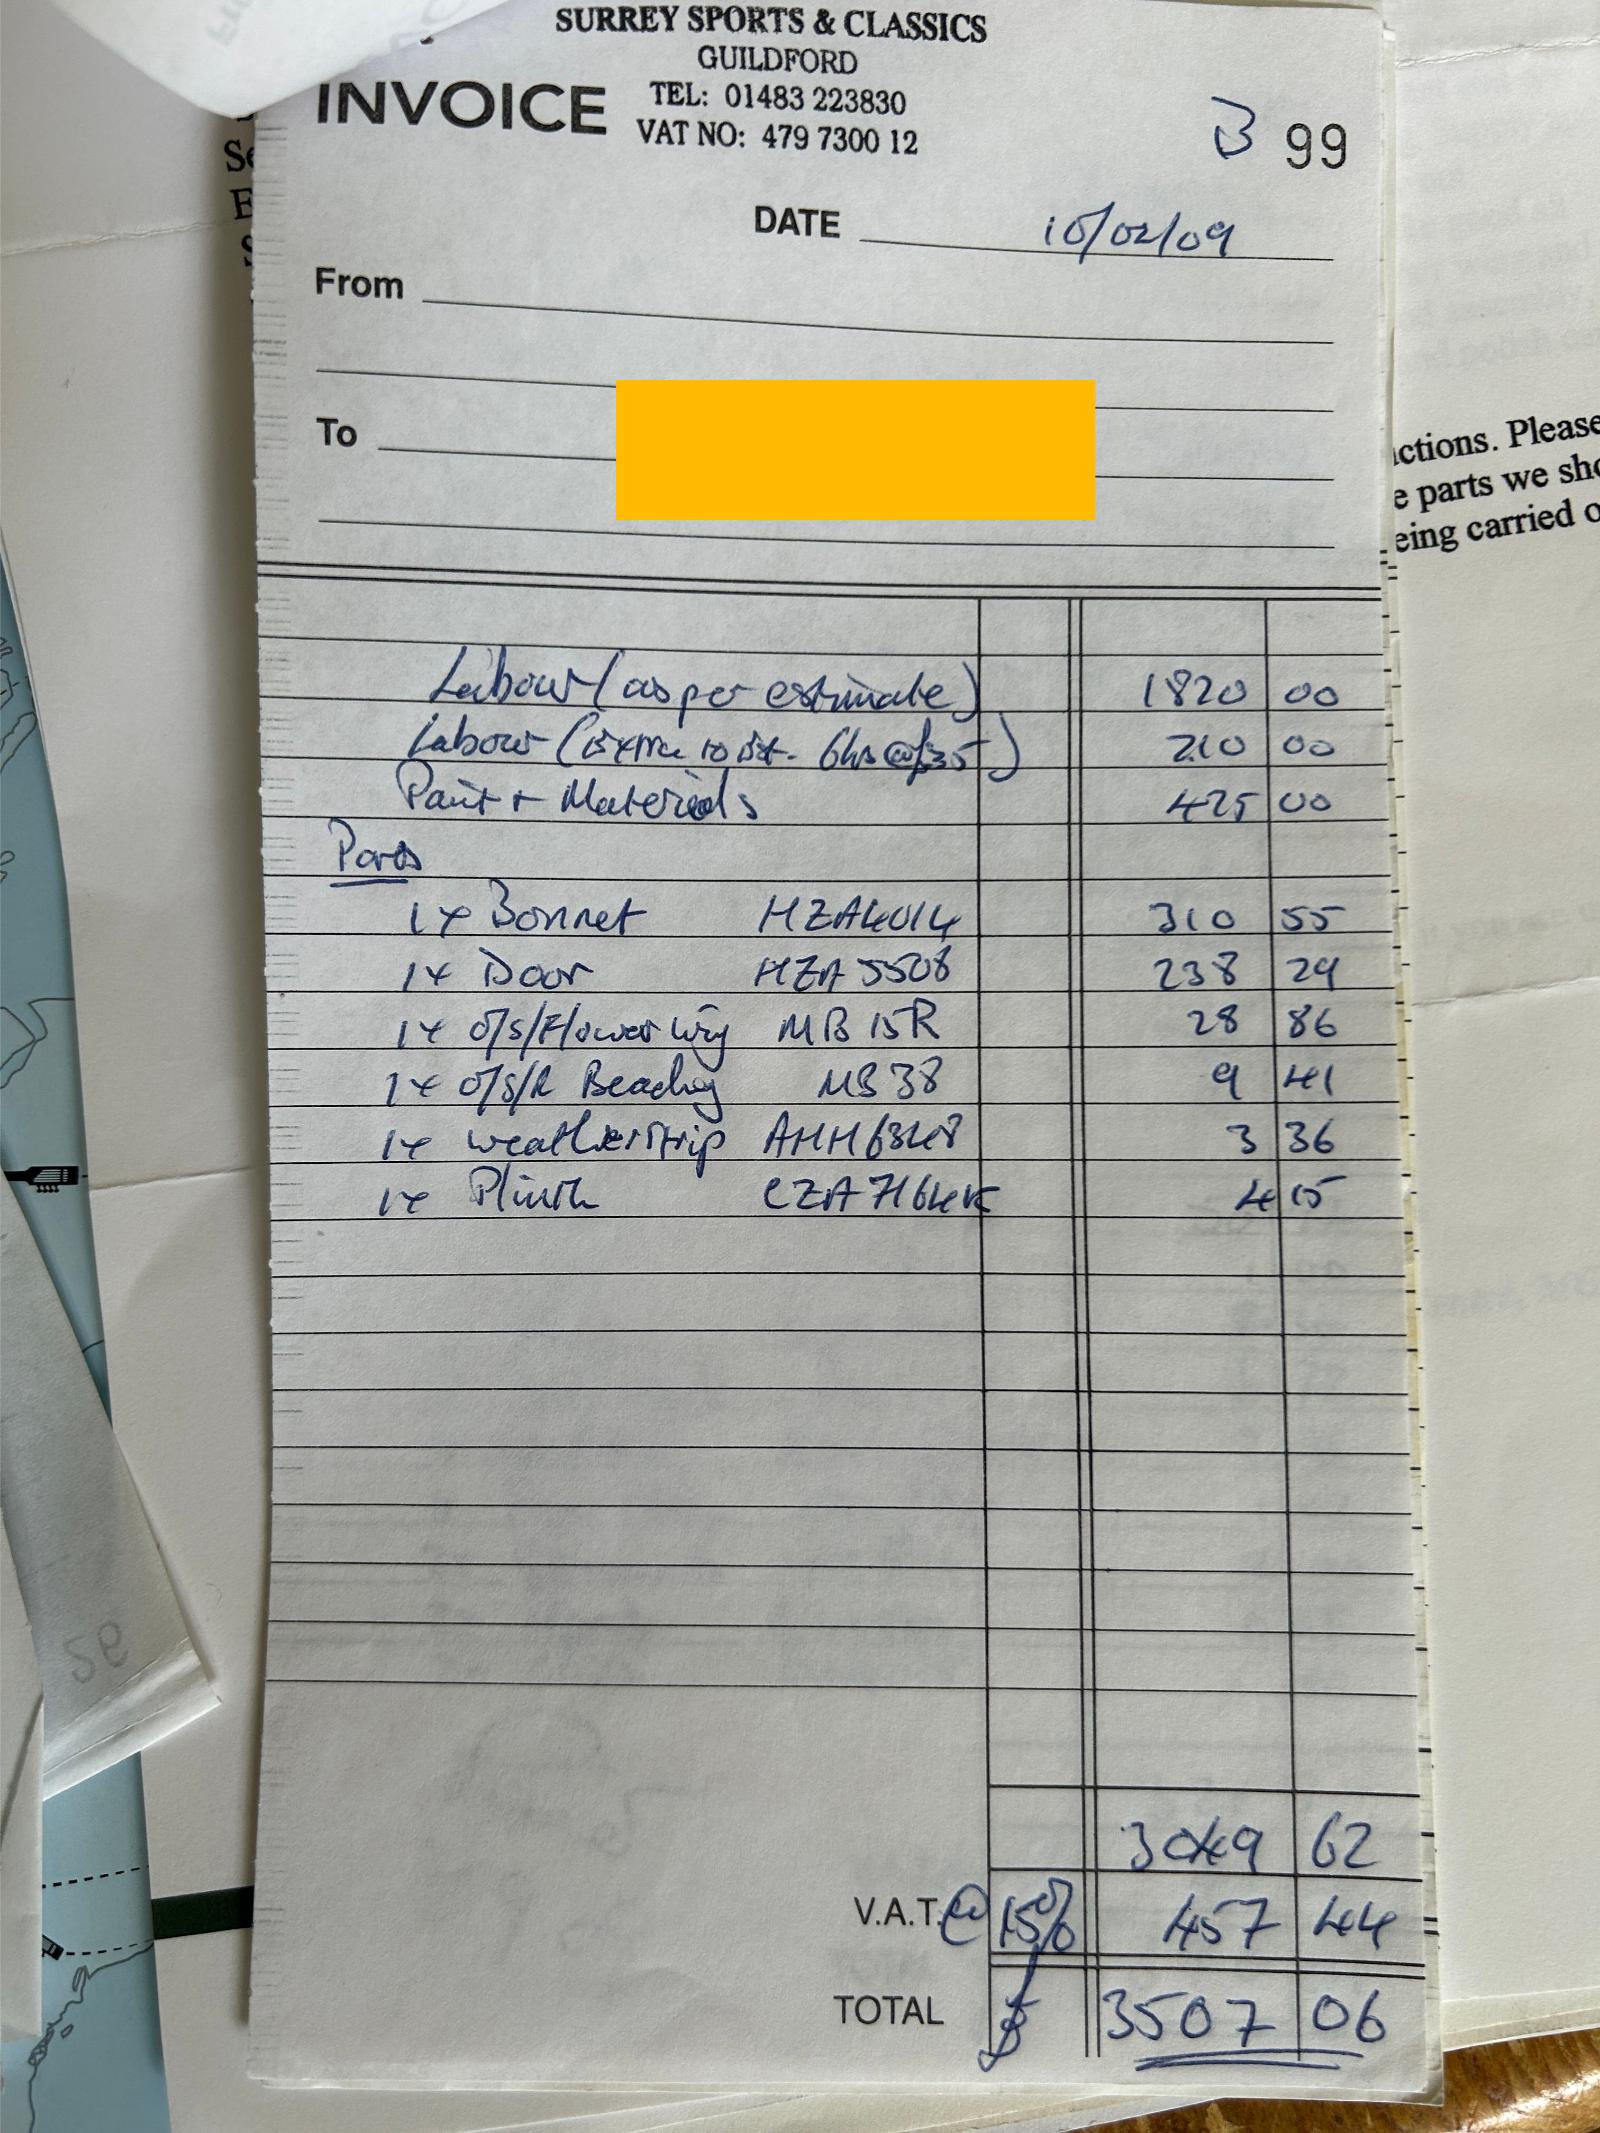 SURREY SPORTS & CLASSICS
GUILDFORD
INVOICE TEL: 01483 223830
VAT NO: 479 7300 12
B 99
DATE 10/02/09
From
To
Labour (as per estimate) 1820 00
Labour (Extra to Est. 6hs @£35) 210 00
Paint + Materials 425 00
Parts
1x Bonnet HZA4014 310 55
1x Door HZA 5508 238 29
1x O/S/F/Lower Wing MB 15R 28 86
1x O/S/R Beading MB38 9 41
1x Weatherstrip AHH6348 3 36
1x Plinth CZA7164K 4 15
3049 62
V.A.T. @ 15% 457 44
TOTAL £ 3507 06
ctions. Please
e parts we sho
eing carried o